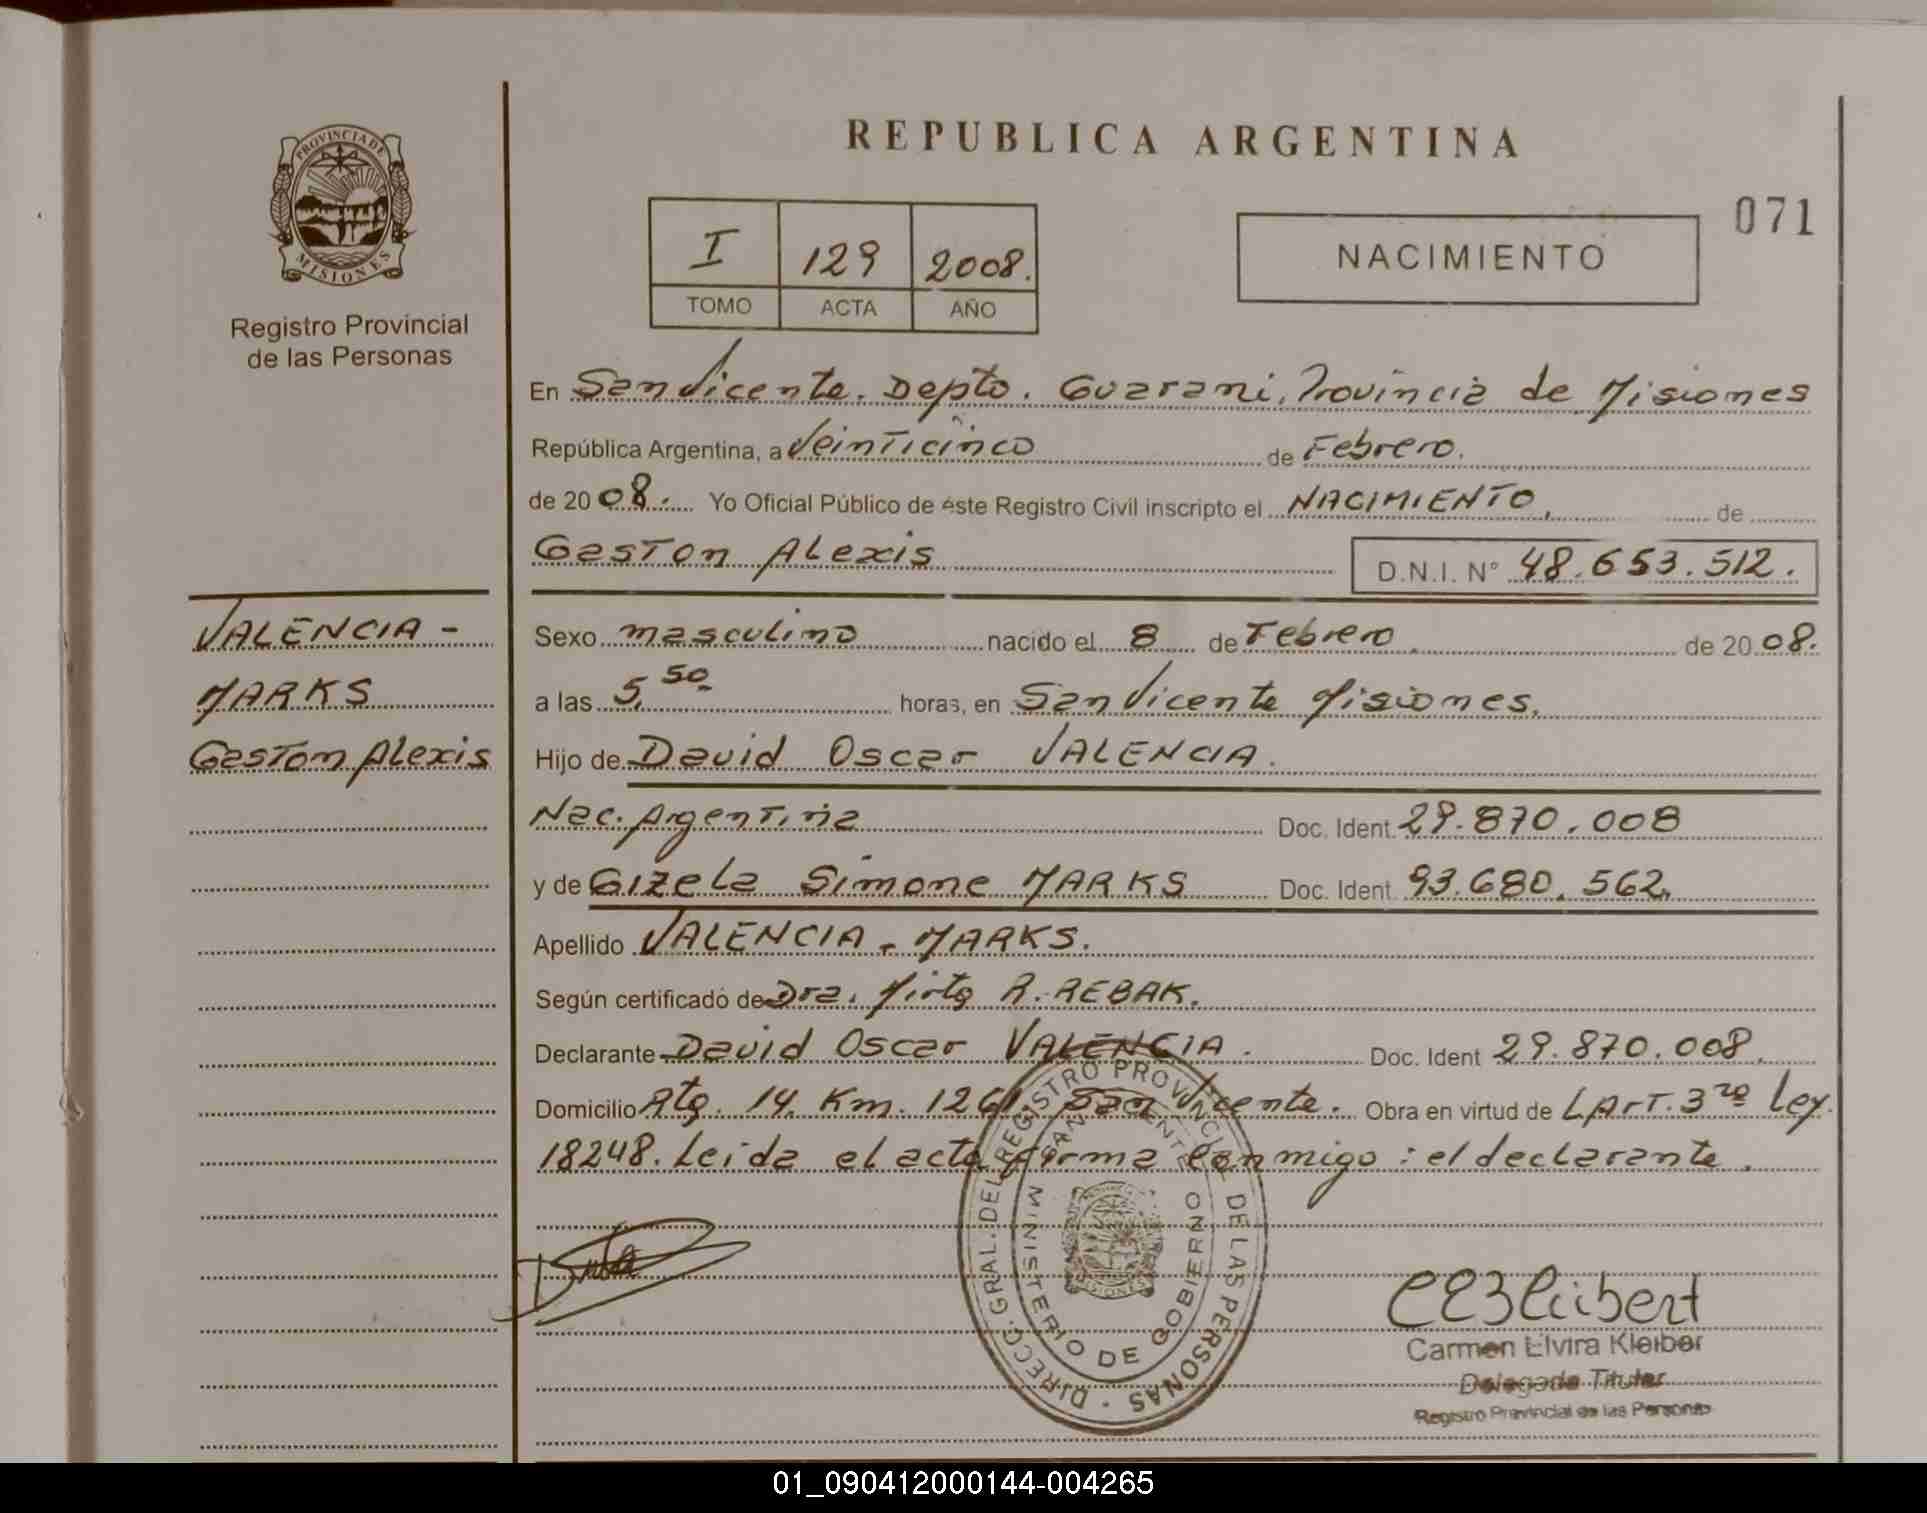 REPUBLICA ARGENTINA
PROVINCIA DE
MISIONES
Registro Provincial
de las Personas
I 129 2008.
TOMO ACTA AÑO
NACIMIENTO
071
En San Vicente. Depto. Guarani, Provincia de Misiones
República Argentina, a Veinticinco de Febrero.
de 2008. Yo Oficial Público de éste Registro Civil inscripto el NACIMIENTO, de
Gaston Alexis D.N.I. N° 48.653.512.
VALENCIA -
MARKS
Gaston Alexis
Sexo masculino nacido el 8 de Febrero de 2008.
a las 5,50 horas, en San Vicente Misiones.
Hijo de David Oscar VALENCIA.
Nac. Argentina Doc. Ident. 29.870.008
y de Gizela Simone MARKS Doc. Ident. 93.680.562.
Apellido VALENCIA - MARKS.
Según certificado de Dra. Mirta R. REBAK.
Declarante David Oscar VALENCIA. Doc. Ident 29.870.008.
Domicilio Rta. 14 Km. 1261 San Vicente. Obra en virtud de L Art. 3ro Ley.
18248. Leida el acta firma conmigo: el declarante.
DIRECC. GRAL. DEL REGISTRO PROVINCIAL DE LAS PERSONAS
SAN VICENTE
MINISTERIO DE GOBIERNO
MISIONES
Carmen Elvira Kleiber
Delegada Titular
Registro Provincial de las Personas
01_090412000144-004265